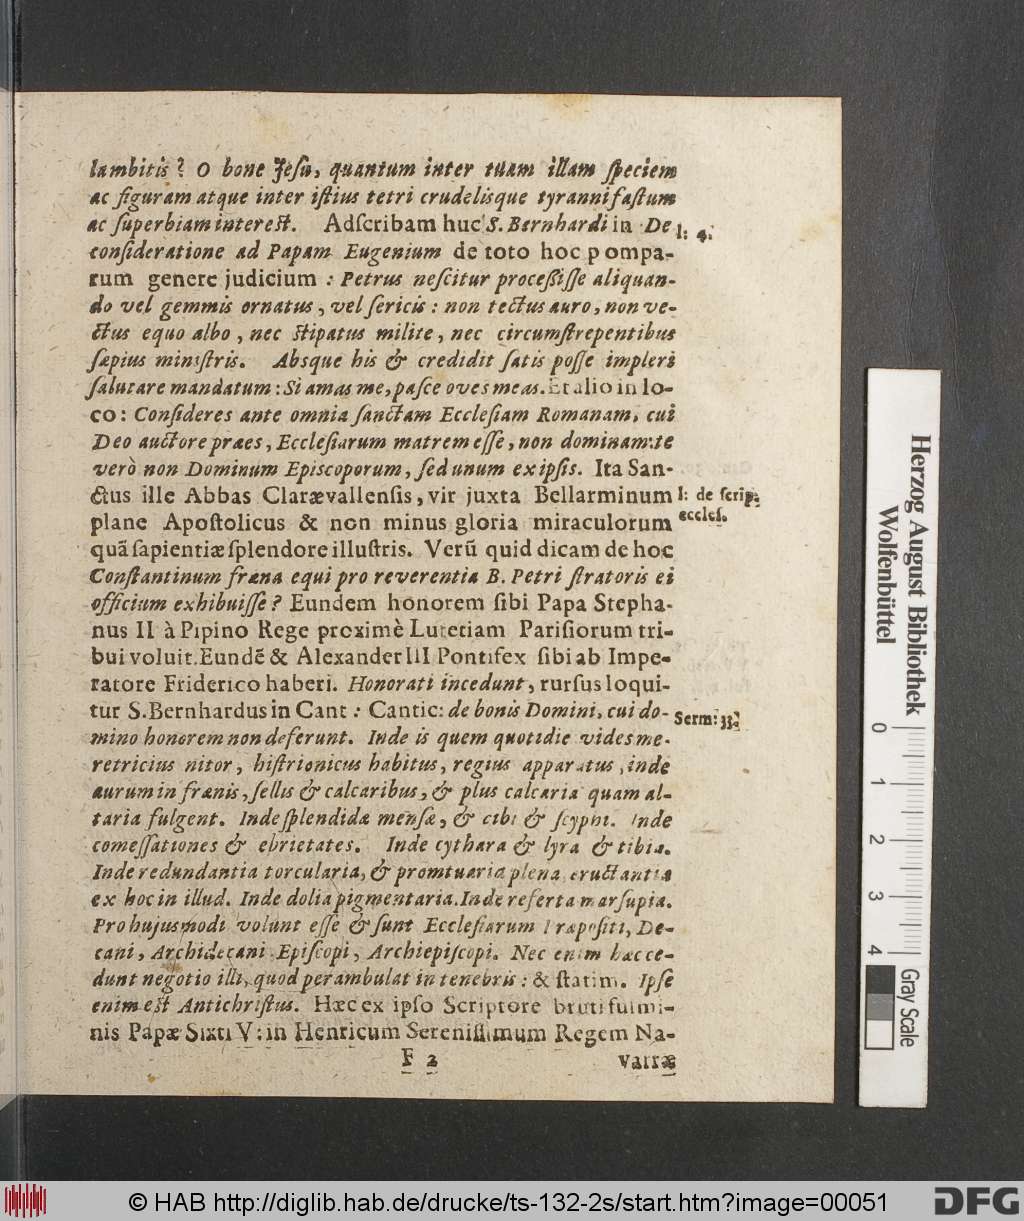 lambitis? O bone Jeſu, quantum inter tuam illam ſpeciem
ac figuram atque inter iſtius tetri crudelisque tyranni faſtum
ac ſuperbiam intereſt. Adſcribam huc S. Bernhardi in De
l: 4.
conſideratione ad Papam Eugenium de toto hoc pompa-
rum genere judicium : Petrus neſcitur proceßiſſe aliquan-
do vel gemmis ornatus, vel ſericis : non tectus auro, non ve-
ctus equo albo, nec ſtipatus milite, nec circumſtrepentibus
ſæpius miniſtris. Absque his & credidit ſatis poſſe impleri
ſalutare mandatum : Si amas me, paſce oves meas. Et alio in lo-
co: Conſideres ante omnia ſanctam Eccleſiam Romanam, cui
Deo auctore præes, Eccleſiarum matrem eſſe, non dominam: te
verò non Dominum Epiſcoporum, ſed unum ex ipſis. Ita San-
ctus ille Abbas Clarævallenſis, vir juxta Bellarminum
l: de ſcrip.
plane Apoſtolicus & non minus gloria miraculorum
eccleſ.
quã ſapientiæ ſplendore illuſtris. Verũ quid dicam de hoc
Conſtantinum fræna equi pro reverentia B. Petri ſtratoris ei
officium exhibuiſſe? Eundem honorem ſibi Papa Stepha-
nus II à Pipino Rege proximè Lutetiam Pariſiorum tri-
bui voluit. Eundẽ & Alexander III Pontifex ſibi ab Impe-
ratore Friderico haberi. Honorati incedunt, rurſus loqui-
tur S. Bernhardus in Cant : Cantic: de bonis Domini, cui do-
Serm: 33.
mino honorem non deferunt. Inde is quem quotidie vides me-
retricius nitor, hiſtrionicus habitus, regius apparatus, inde
aurum in frænis, ſellis & calcaribus, & plus calcaria quam al-
taria fulgent. Inde ſplendidæ menſæ, & cibi & ſcyphi. Inde
comeſſationes & ebrietates. Inde cythara & lyra & tibia.
Inde redundantia torcularia, & promtuaria plena, eructantia
ex hoc in illud. Inde dolia pigmentaria. Inde referta marſupia.
Pro hujusmodi volunt eſſe & ſunt Eccleſiarum Præpoſiti, De-
cani, Archidecani Epiſcopi, Archiepiſcopi. Nec enim hæc ce-
dunt negotio illi, quod perambulat in tenebris : & ſtatim. Ipſe
enim eſt Antichriſtus. Hæc ex ipſo Scriptore bruti fulmi-
nis Papæ Sixti V: in Henricum Sereniſſimum Regem Na-
F 2
varræ
Herzog August Bibliothek
Wolfenbüttel
0 1 2 3 4
Gray Scale
© HAB http://diglib.hab.de/drucke/ts-132-2s/start.htm?image=00051
DFG